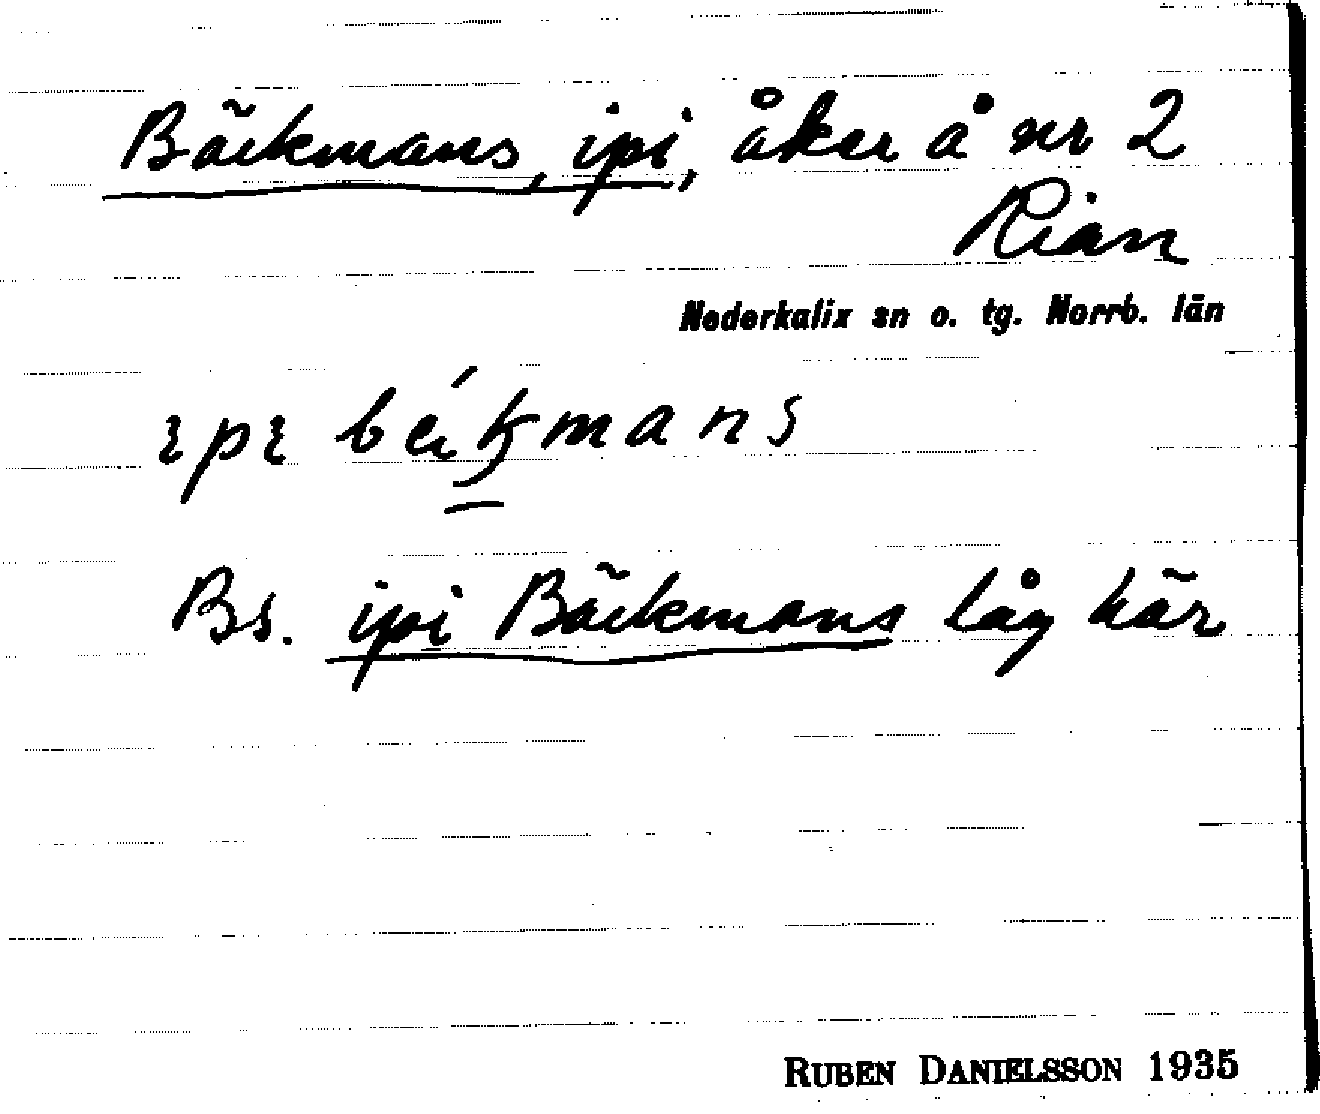 Bäckmans, ipi, åker å nr 2
Rian
Nederkalix sn o. tg. Norrb. län
ɩpɩ bäkmans
Bs. ipi Bäckmans låg här
RUBEN DANIELSSON 1935